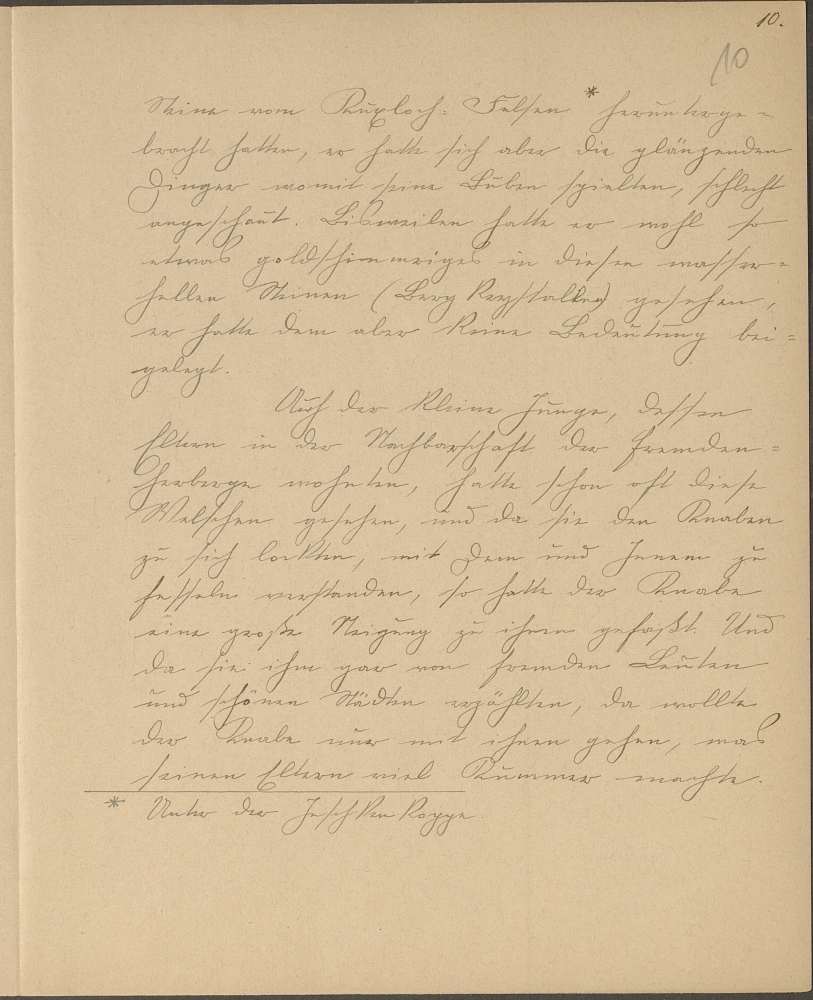 10.
10
Steine vom Kuxloch-Felsen * herunterge-
bracht hatten, er hatte sich aber die glänzenden
Dinger womit seine Buben spielten, schlecht
angeschaut. Bisweilen hatte er wohl so
etwas goldschimmriges in diesen wasser-
hellen Steinen (Berg Krystallen) gesehen,
er hatte dem aber keine Bedeutung bei-
gelegt.
Auch der kleine Junge, dessen
Eltern in der Nachbarschaft der Fremden-
herberge wohnten, hatte schon oft diese
Welschen gesehen, und da sie den Knaben
zu sich lockten, mit Dem und Jenem zu
fesseln verstanden, so hatte der Knabe
eine große Neigung zu ihnen gefaßt. Und
da sie ihm gar von fremden Leuten
und schönen Städten erzählten, da wollte
der Knabe nur mit ihnen gehen, was
seinen Eltern viel Kummer machte.
* Unter der Jeschkenkoppe